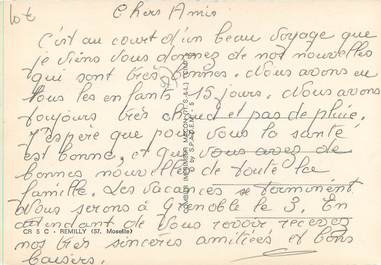 lot
Chers Amis
C'est au court d'un beau voyage que
je viens vous donnez de nos nouvelles
qui sont très bonnes. Nous avons eu
tous les enfants 15 jours. Nous avons
toujours très chaud et pas de pluie.
J'espère que pour vous la santé
est bonne, et que vous avez de
bonnes nouvelles de toute la
famille. Les vacances se terminent
Nous serons à Grenoble le 3. En
attendant de vous revoir recevez
nos très sincères amitiées et bons
baisers.
CR S C - REMILLY (57. Moselle)
COMBIER IMPRIMEUR MACON